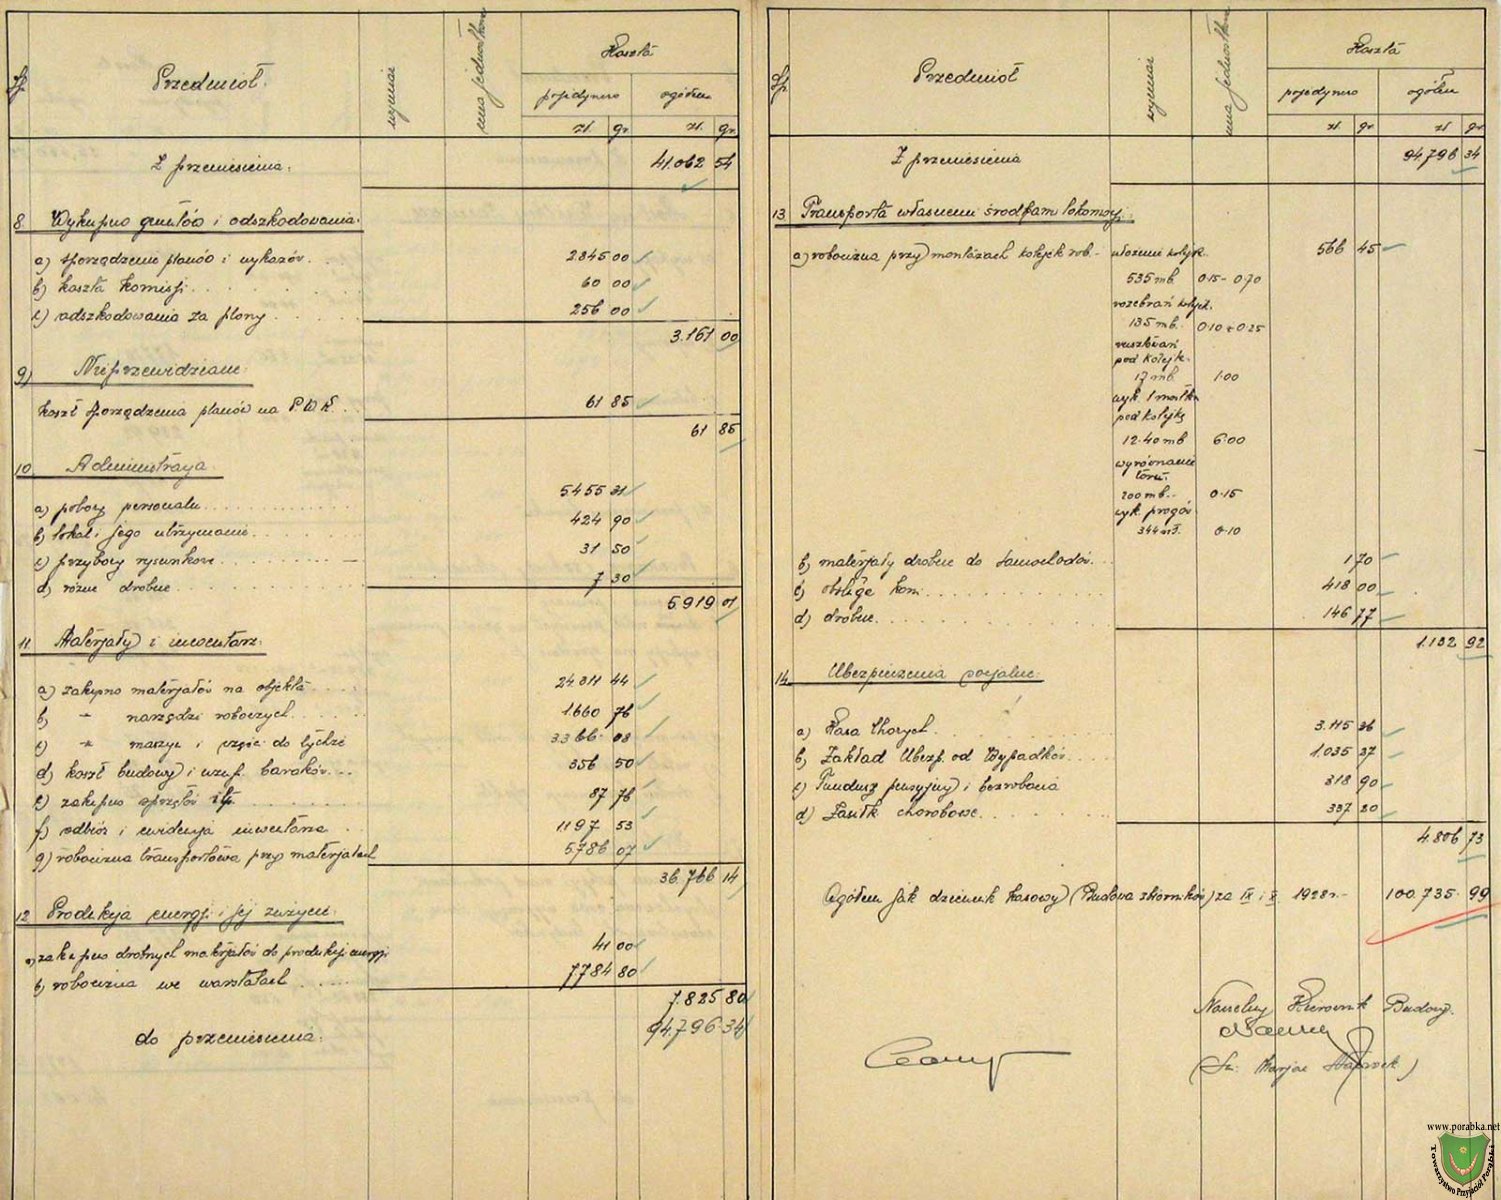 Lp
Przedmiot.
wymiar
cena jednostkowa
Koszta
pojedyńcze
ogółem
zł. gr. zł. gr.
Z przeniesienia. 41.062 54
8 Wykupno gruntów i odszkodowania.
a) sporządzenie planów i wykazów. 2845 00
b) koszta komisji 60 00
c) odszkodowania za plony 256 00
3.161 00
9) Nieprzewidziane
koszt sporządzenia planów na P.W.K. 61 85
61 85
10 Administracja
a) pobory personalu 5455 31
b) lokal i jego utrzymanie 424 90
c) przybory rysunkowe 31 50
d) różne drobne 7 30
5.919 01
11 Materjały i inwentarz.
a) zakupno materjałów na objekta 24.311 44
b) " narzędzi roboczych 1.660 76
c) " maszyn i części do tychże 3.366 08
d) koszt budowy i baraków 356 50
e) zakupno sprzętów itp. 87 76
f) odbiór i ewidencja inwentarza 1197 53
g) robocizna transportowa przy materjałach 5.786 07
36.766 14
12 Produkcja energji i jej zużycie.
a) zakupno drobnych materjałów do produkcji energji 41 00
b) robocizna we warstatach 7.784 80
7.825 80
do przeniesienia. 94.796.34
Lp
Przedmiot
wymiar
cena jednostkowa
Koszta
pojedyńczo
ogółem
zł. gr. zł gr.
Z przeniesienia 94.796 34
13 Transporta własnemi środkami lokomocji
a) robocizna przy montażach kolejek rob. ułożenie kolejk. 566 45
535 mb. 0.15 - 0.70
rozebrań kolejk.
135 mb. 0.10 ÷ 0.25
rusztowań
pod kolejk.
17 mb. 1.00
wyk. 1 mostku
pod kolejkę
12.40 mb 6.00
wyrównanie
toru.
200 mb. 0.15
wyk. progów
344 szt. 0.10
b) materjały drobne do samochodów 1 70
c) obsługa koni 418 00
d) drobne 146 77
1.132 92
14 Ubezpieczenia socjalne.
a) Kasa Chorych 3.115 26
b) Zakład Ubezp. od Wypadków 1.035 37
c) Fundusz pensyjny i bezrobocia 318 90
d) Zasiłk. chorobowe 337 20
4.806 73
Ogółem jak dziennik kasowy (Budowa zbiorników) za IX i X 1928 r. 100.735.99
Naczelny Kierownik Budowy.
www.porabka.net
Towarzystwo Przyjaciół Porąbki